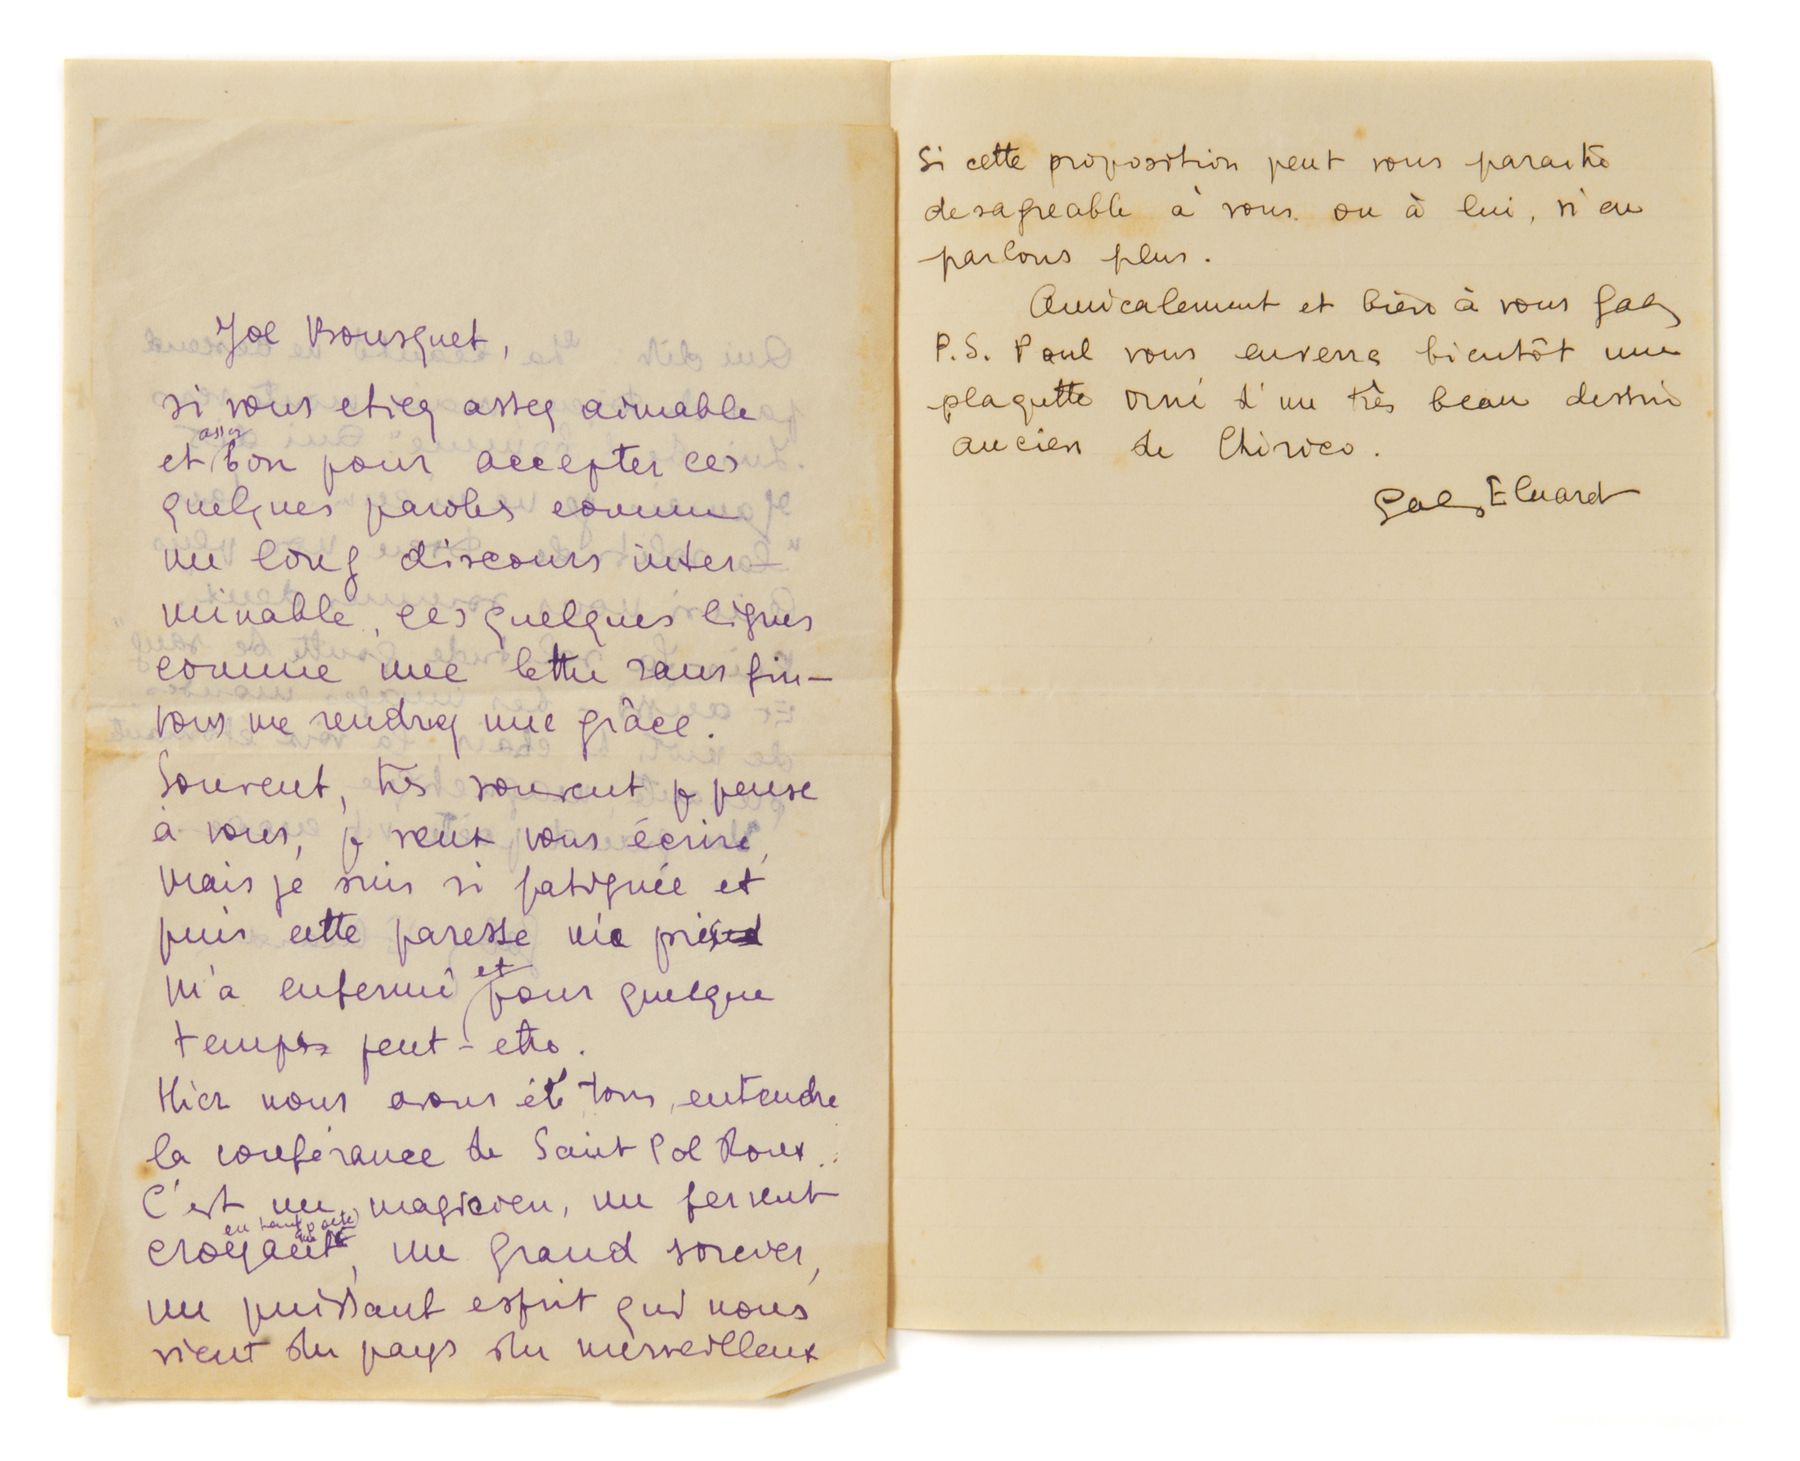 Joe Bousquet,
si vous etiez assez aimable
et assez bon pour accepter ces
quelques paroles comme
un long discours inter-
minable, ces quelques lignes
comme une lettre sans fin—
vous me rendrez une grâce.
Souvent, très souvent je pense
à vous, je veux vous écrire,
mais je suis si fatiguée et
puis cette paresse m'a
m'a enfermé et pour quelque
temps peut-etre.
Hier nous avons été tous entendre
la conférance de Saint Pol Roux.
C'est un magicien, un fervent
croyant, un grand sorcier,
un puissant esprit qui nous
vient du pays du merveilleux
Si cette proposition peut vous paraitre
desagreable à vous ou à lui, n'en
parlons plus.
Amicalement et bien à vous Gala
P.S. Paul vous enverra bientôt une
plaquette orné d'un très beau dessin
ancien de Chirico.
Gala Eluard